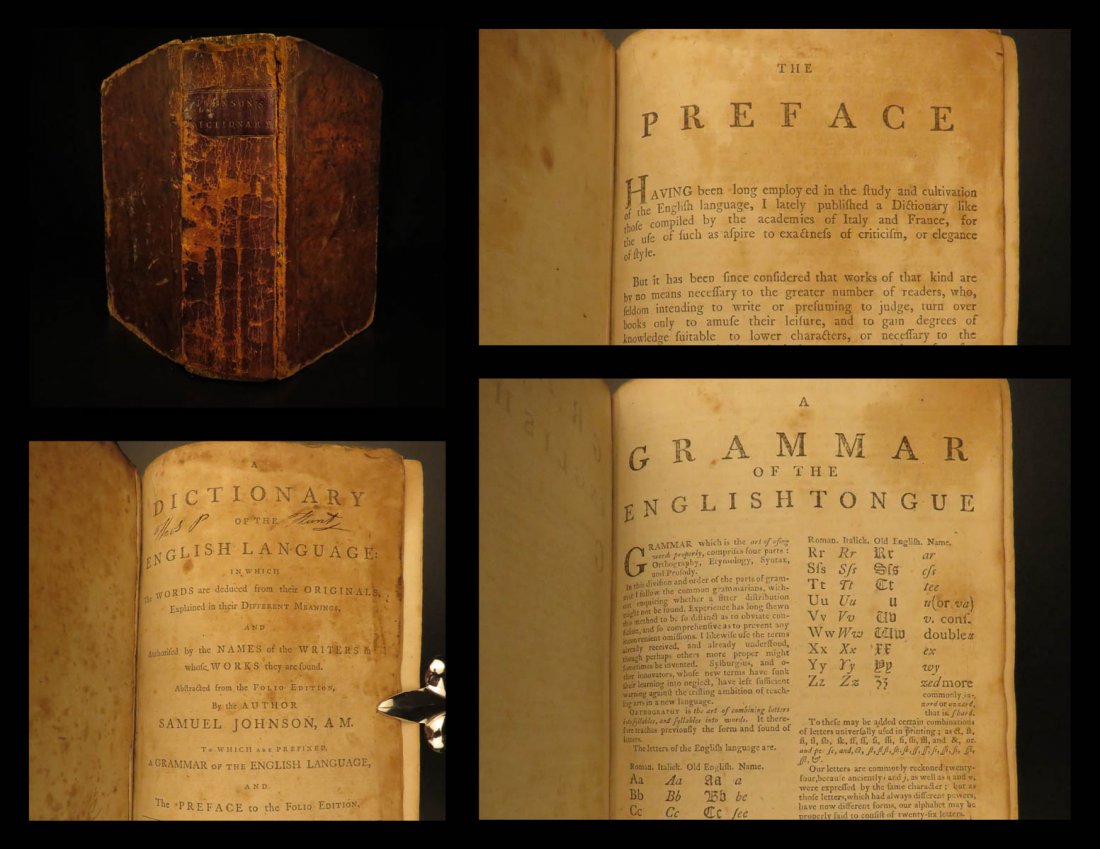 JOHNSON'S
DICTIONARY
THE
PREFACE
HAVING been long employ ed in the ſtudy and cultivation
of the Engliſh language, I lately publiſhed a Dictionary like
thoſe compiled by the academies of Italy and France, for
the uſe of ſuch as aſpire to exactneſs of criticiſm, or elegance
of ſtyle.
But it has been ſince conſidered that works of that kind are
by no means neceſſary to the greater number of readers, who,
ſeldom intending to write or preſuming to judge, turn over
books only to amuſe their leiſure, and to gain degrees of
knowledge ſuitable to lower characters, or neceſſary to the
A
DICTIONARY
OF THE
ENGLISH LANGUAGE:
IN WHICH
The WORDS are deduced from their ORIGINALS,
Explained in their DIFFERENT MEANINGS,
AND
Authoriſed by the NAMES of the WRITERS in
whoſe WORKS they are found.
Abſtracted from the FOLIO EDITION,
By the AUTHOR
SAMUEL JOHNSON, A M.
TO WHICH ARE PREFIXED,
A GRAMMAR OF THE ENGLISH LANGUAGE,
AND
The PREFACE to the FOLIO EDITION.
A
GRAMMAR
OF THE
ENGLISH TONGUE
GRAMMAR which is the art of uſing
words properly, compriſes four parts:
Orthography, Etymology, Syntax,
and Proſody.
In this diviſion and order of the parts of gram-
mar I follow the common grammarians, with-
out enquiring whether a fitter diſtribution
might not be found. Experience has long ſhewn
this method to be ſo diſtinct as to obviate con-
fuſion, and ſo comprehenſive as to prevent any
inconvenient omiſſions. I likewiſe uſe the terms
already received, and already underſtood,
though perhaps others more proper might
ſometimes be invented. Sylburgius, and o-
ther innovators, whoſe new terms have ſunk
their learning into neglect, have left ſufficient
warning againſt the trifling ambition of teach-
ing arts in a new language.
ORTHOGRAPHY is the art of combining letters
into ſyllables, and ſyllables into words. It there-
fore teaches previouſly the form and ſound of
letters.
The letters of the Engliſh language are,
Roman. Italick. Old Engliſh. Name.
Aa Aa Aa a
Bb Bb Bb be
Cc Cc Cc ſee
Roman. Italick. Old Engliſh. Name.
Rr Rr Rr ar
Sſs Sſs Sſs eſs
Tt Tt Tt tee
Uu Uu u u (or va)
Vv Vv Uv v. conſ.
Ww Ww Ww double u
Xx Xx Xx ex
Yy Yy Yy wy
Zz Zz Zz zed more
commonly iz-
zard or uzzard,
that is ſ hard.
To theſe may be added certain combinations
of letters univerſally uſed in printing; as ct, ſt,
Our letters are commonly reckoned twenty-
four, becauſe anciently i and j, as well as u and v,
were expreſſed by the ſame character; but as
thoſe letters, which had always different powers,
have now different forms, our alphabet may be
properly ſaid to conſiſt of twenty-ſix letters.